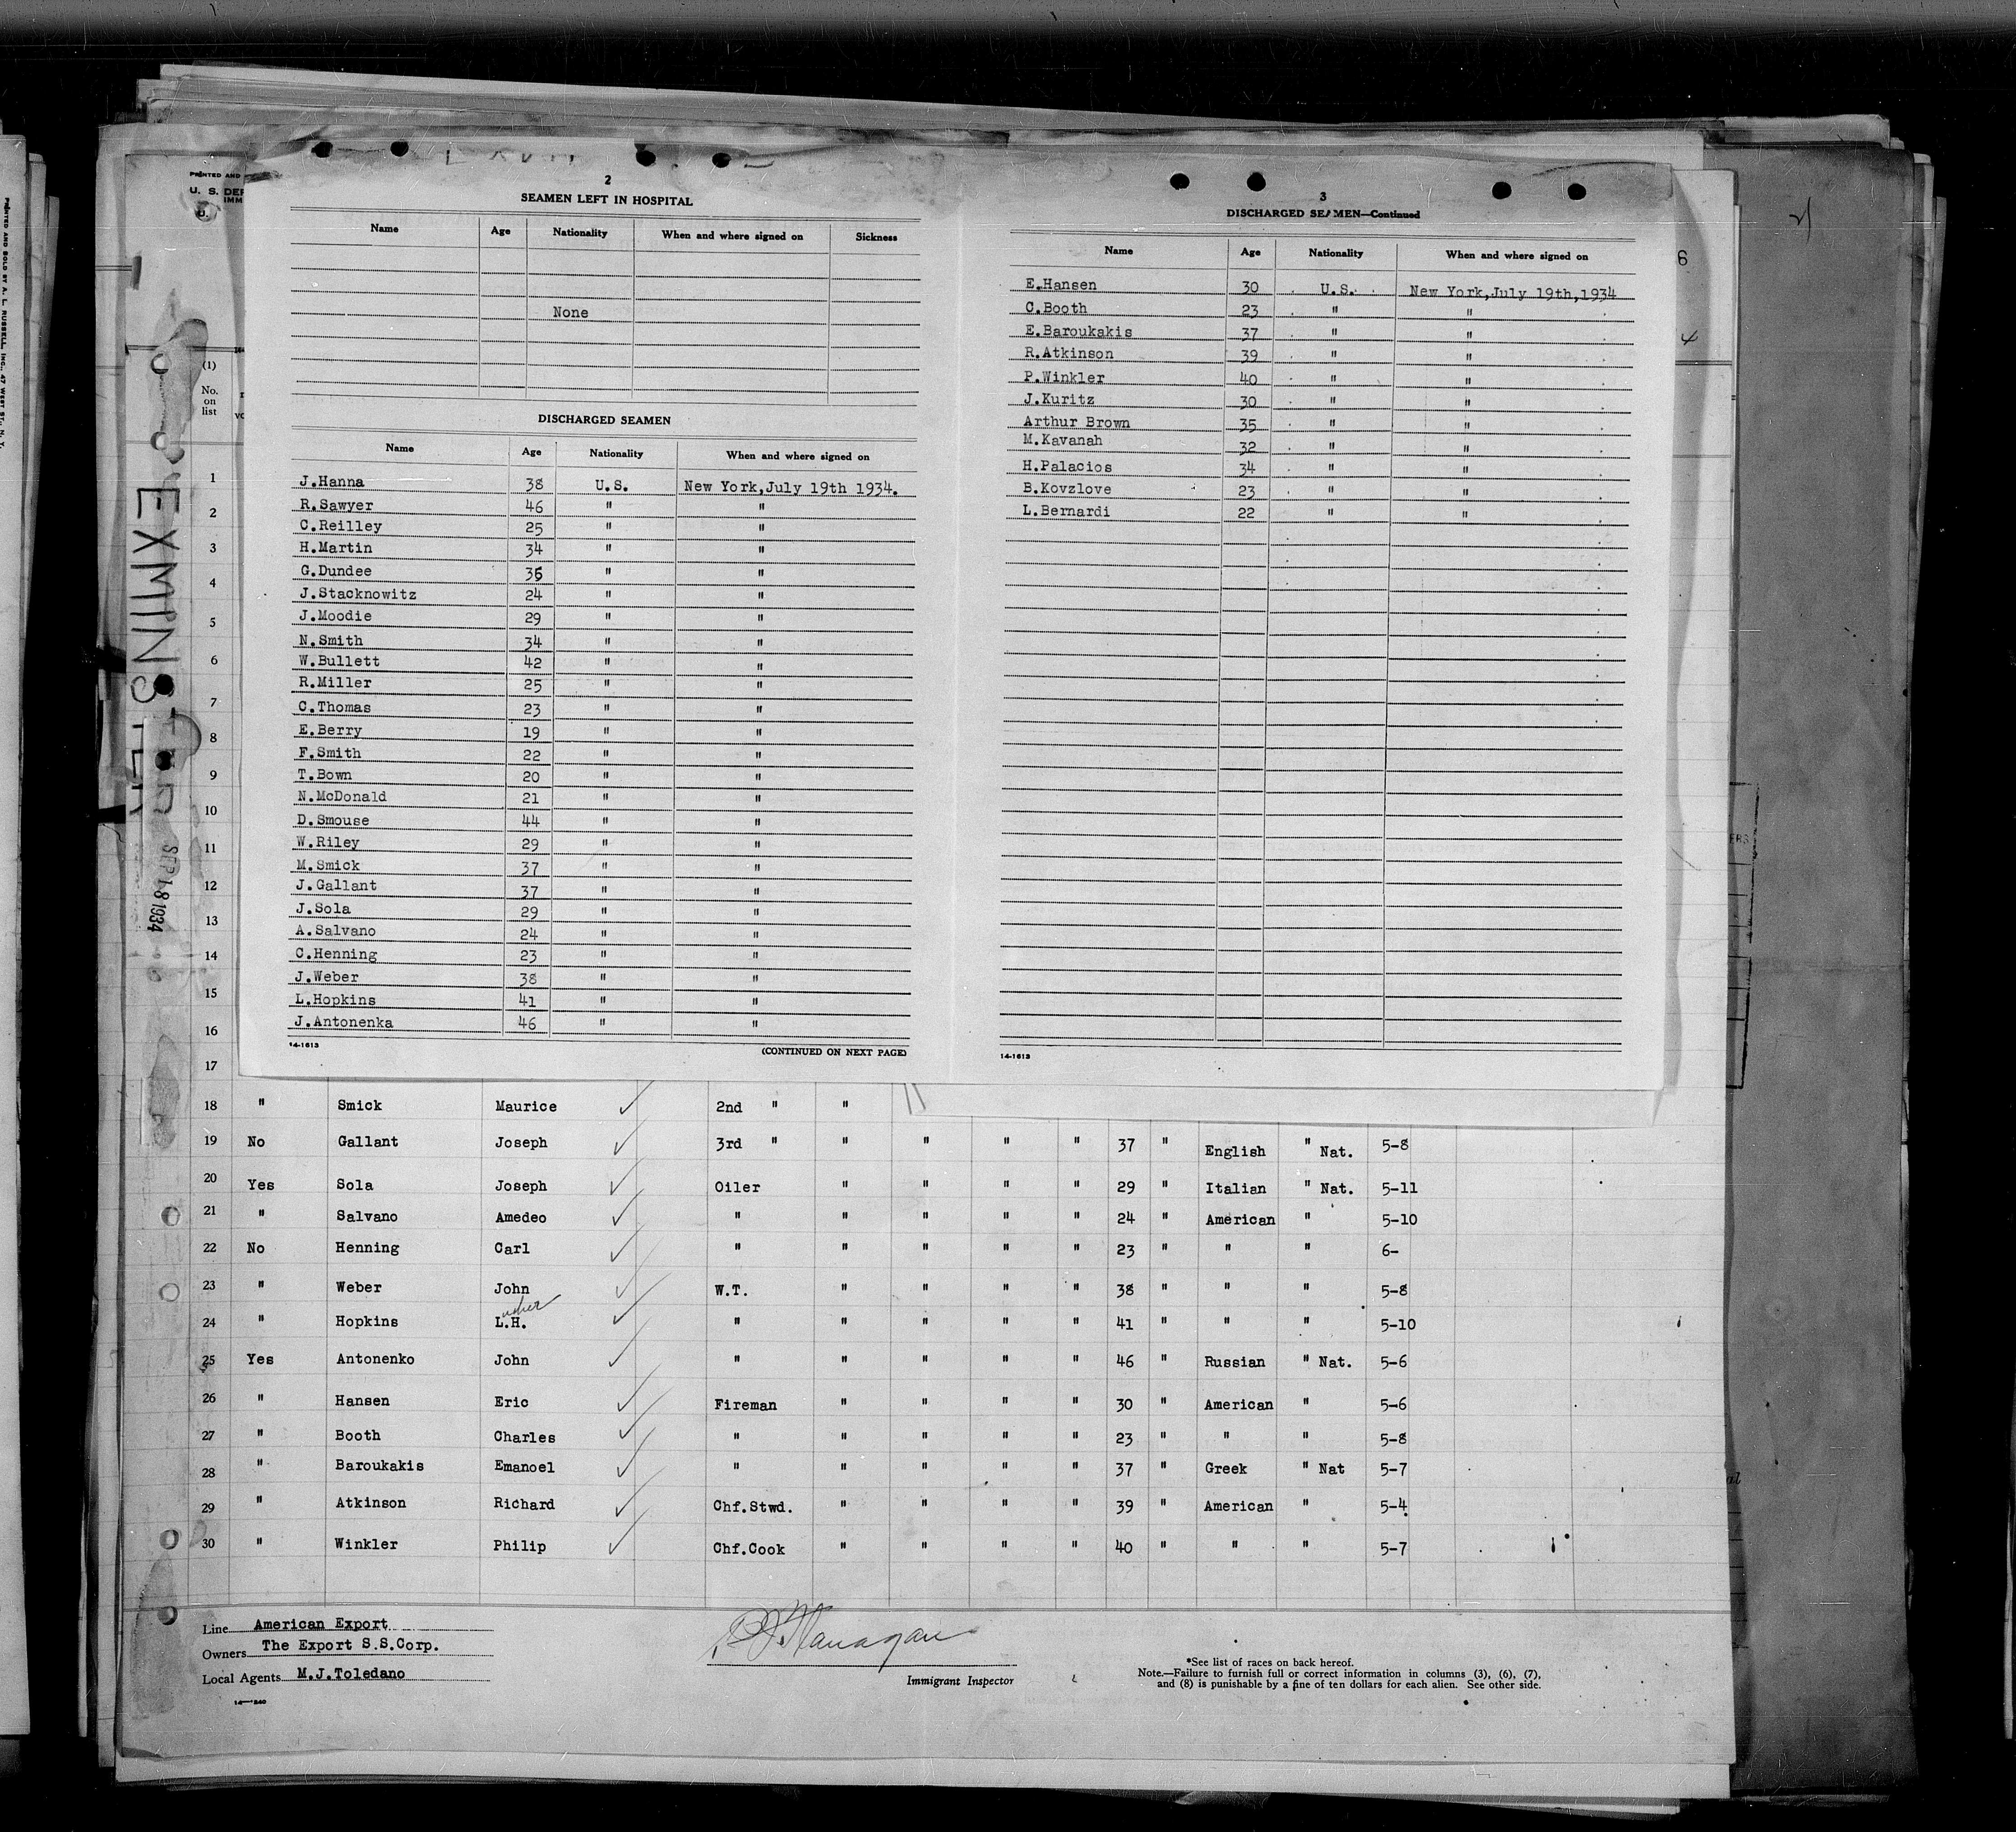 PRINTED AND
U. S. DEP
IMM
U.
PRINTED AND SOLD BY A. L. RUSSELL, INC., 47 WEST ST., N. Y.
EXMINSTER
SEP 18 1934
2
SEAMEN LEFT IN HOSPITAL
Name Age Nationality When and where signed on Sickness
None
DISCHARGED SEAMEN
Name Age Nationality When and where signed on
J.Hanna 38 U.S. New York,July 19th 1934.
R.Sawyer 46 " "
C.Reilley 25 " "
H.Martin 34 " "
G.Dundee 36 " "
J.Stacknowitz 24 " "
J.Moodie 29 " "
N.Smith 34 " "
W.Bullett 42 " "
R.Miller 25 " "
C.Thomas 23 " "
E.Berry 19 " "
F.Smith 22 " "
T.Bown 20 " "
N.McDonald 21 " "
D.Smouse 44 " "
W.Riley 29 " "
M.Smick 37 " "
J.Gallant 37 " "
J.Sola 29 " "
A.Salvano 24 " "
C.Henning 23 " "
J.Weber 38 " "
L.Hopkins 41 " "
J.Antonenka 46 " "
14-1613 (CONTINUED ON NEXT PAGE)
3
DISCHARGED SEAMEN—Continued
Name Age Nationality When and where signed on
E.Hansen 30 U.S. New York,July 19th,1934
C.Booth 23 " "
E.Baroukakis 37 " "
R.Atkinson 39 " "
P.Winkler 40 " "
J.Kuritz 30 " "
Arthur Brown 35 " "
M.Kavanah 32 " "
H.Palacios 34 " "
B.Kovzlove 23 " "
L.Bernardi 22 " "
14-1613
6
ERS
(1)
No.
on
list
1
2
3
4
5
6
7
8
9
10
11
12
13
14
15
16
17
18 " Smick Maurice 2nd " "
19 No Gallant Joseph 3rd " " " " " 37 " English " Nat. 5-8
20 Yes Sola Joseph Oiler " " " " 29 " Italian " Nat. 5-11
21 " Salvano Amedeo " " " " " 24 " American " 5-10
22 No Henning Carl " " " " " 23 " " " 6-
23 " Weber John W.T. " " " " 38 " " " 5-8
24 " Hopkins L.H. " " " " " 41 " " " 5-10
25 Yes Antonenko John " " " " " 46 " Russian " Nat. 5-6
26 " Hansen Eric Fireman " " " " 30 " American " 5-6
27 " Booth Charles " " " " " 23 " " " 5-8
28 " Baroukakis Emanoel " " " " " 37 " Greek " Nat 5-7
29 " Atkinson Richard Chf.Stwd. " " " " 39 " American " 5-4
30 " Winkler Philip Chf.Cook " " " " 40 " " " 5-7
Line American Export
Owners The Export S.S.Corp.
Local Agents M.J.Toledano
14—1240
Immigrant Inspector
*See list of races on back hereof.
Note.—Failure to furnish full or correct information in columns (3), (6), (7),
and (8) is punishable by a fine of ten dollars for each alien. See other side.